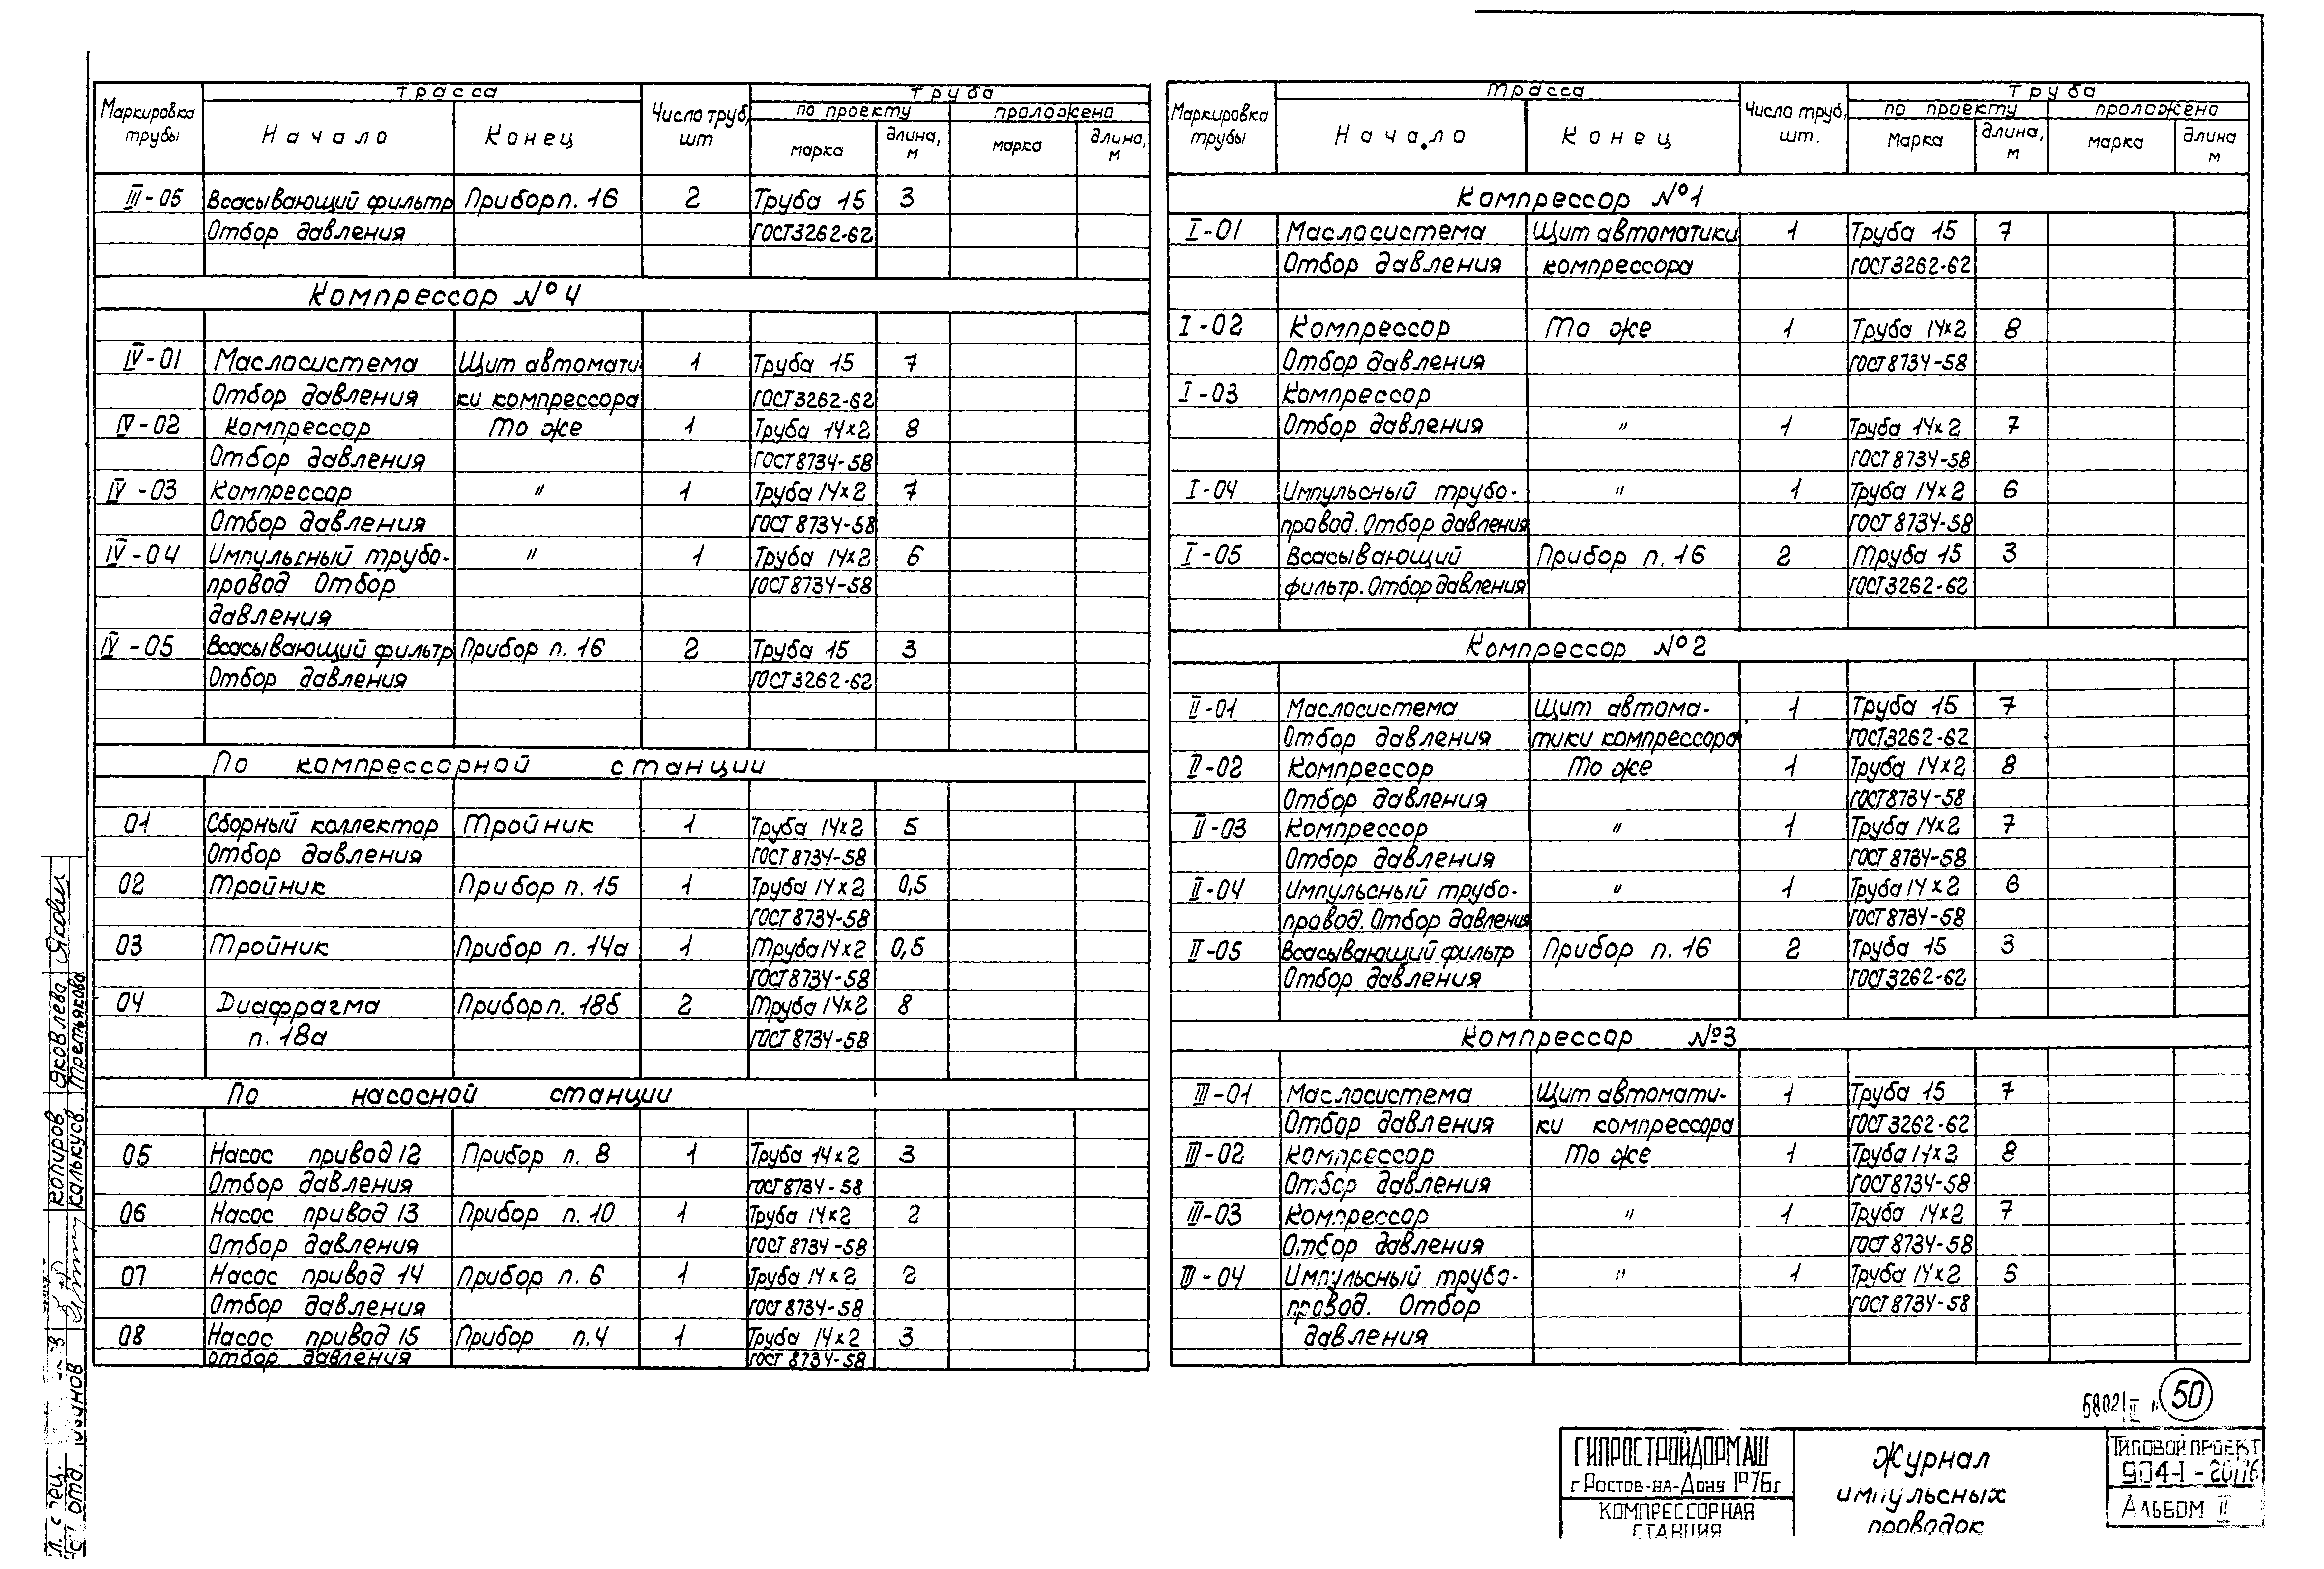 Маркировка трубы | трасса | Число труб, шт | труба
Начало | Конец | по проекту | проложено
марка | длина, м | марка | длина, м
III-05 | Всасывающий фильтр | Прибор п. 16 | 2 | Труба 15 | 3
Отбор давления | ГОСТ 3262-62
Компрессор №4
IV-01 | Маслосистема | Щит автомати- | 1 | Труба 15 | 7
Отбор давления | ки компрессора | ГОСТ 3262-62
IV-02 | Компрессор | То же | 1 | Труба 14х2 | 8
Отбор давления | ГОСТ 8734-58
IV-03 | Компрессор | " | 1 | Труба 14х2 | 7
Отбор давления | ГОСТ 8734-58
IV-04 | Импульсный трубо- | " | 1 | Труба 14х2 | 6
провод Отбор | ГОСТ 8734-58
давления
IV-05 | Всасывающий фильтр | Прибор п. 16 | 2 | Труба 15 | 3
Отбор давления | ГОСТ 3262-62
По компрессорной станции
01 | Сборный коллектор | Тройник | 1 | Труба 14х2 | 5
Отбор давления | ГОСТ 8734-58
02 | Тройник | Прибор п. 15 | 1 | Труба 14х2 | 0,5
ГОСТ 8734-58
03 | Тройник | Прибор п. 14а | 1 | Труба 14х2 | 0,5
ГОСТ 8734-58
04 | Диафрагма | Прибор п. 18б | 2 | Труба 14х2 | 8
п. 18а | ГОСТ 8734-58
По насосной станции
05 | Насос привод 12 | Прибор п. 8 | 1 | Труба 14х2 | 3
Отбор давления | ГОСТ 8734-58
06 | Насос привод 13 | Прибор п. 10 | 1 | Труба 14х2 | 2
Отбор давления | ГОСТ 8734-58
07 | Насос привод 14 | Прибор п. 6 | 1 | Труба 14х2 | 2
Отбор давления | ГОСТ 8734-58
08 | Насос привод 15 | Прибор п. 4 | 1 | Труба 14х2 | 3
отбор давления | ГОСТ 8734-58
Маркировка трубы | трасса | Число труб, шт. | труба
Начало | Конец | по проекту | проложено
марка | длина, м | марка | длина м
Компрессор №1
I-01 | Маслосистема | Щит автоматики | 1 | Труба 15 | 7
Отбор давления | компрессора | ГОСТ 3262-62
I-02 | Компрессор | То же | 1 | Труба 14х2 | 8
Отбор давления | ГОСТ 8734-58
I-03 | Компрессор
Отбор давления | " | 1 | Труба 14х2 | 7
ГОСТ 8734-58
I-04 | Импульсный трубо- | " | 1 | Труба 14х2 | 6
провод. Отбор давления | ГОСТ 8734-58
I-05 | Всасывающий | Прибор п. 16 | 2 | Труба 15 | 3
фильтр. Отбор давления | ГОСТ 3262-62
Компрессор №2
II-01 | Маслосистема | Щит автома- | 1 | Труба 15 | 7
Отбор давления | тики компрессора | ГОСТ 3262-62
II-02 | Компрессор | То же | 1 | Труба 14х2 | 8
Отбор давления | ГОСТ 8734-58
II-03 | Компрессор | " | 1 | Труба 14х2 | 7
Отбор давления | ГОСТ 8734-58
II-04 | Импульсный трубо- | " | 1 | Труба 14х2 | 6
провод. Отбор давления | ГОСТ 8734-58
II-05 | Всасывающий фильтр | Прибор п. 16 | 2 | Труба 15 | 3
Отбор давления | ГОСТ 3262-62
Компрессор №3
III-01 | Маслосистема | Щит автомати- | 1 | Труба 15 | 7
Отбор давления | ки компрессора | ГОСТ 3262-62
III-02 | Компрессор | То же | 1 | Труба 14х2 | 8
Отбор давления | ГОСТ 8734-58
III-03 | Компрессор | " | 1 | Труба 14х2 | 7
Отбор давления | ГОСТ 8734-58
III-04 | Импульсный трубо- | " | 1 | Труба 14х2 | 6
провод. Отбор | ГОСТ 8734-58
давления
6802/II 50
ГИПРОСТРОЙДОРМАШ
г Ростов-на-Дону 1976г
КОМПРЕССОРНАЯ
СТАНЦИЯ
Журнал
импульсных
проводок
Типовой проект
904-1-
Альбом II
копиров. Яковлева
калькуев. Третьякова
отд.